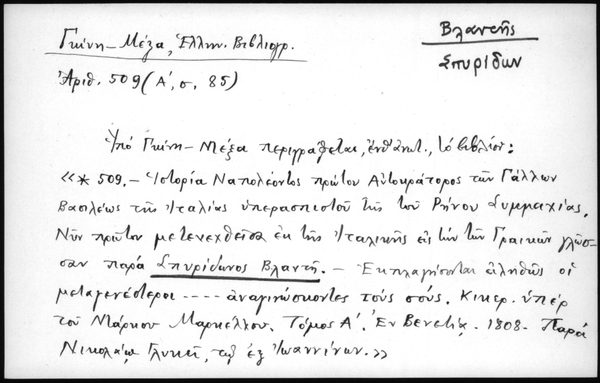 Γκίνη - Μέξα, Ἑλλην. Βιβλιογρ.
Βλαντῆς
Σπυρίδων
Ἀριθ. 509 (Α΄, σ. 85)
Ὑπό Γκίνη - Μέξα περιγράφεται, ἐνθ' ἀνωτ., τό βιβλίον:
«* 509. - Ἱστορία Ναπολέοντος πρώτου Αὐτοκράτορος τῶν Γάλλων
Βασιλέως τῆς Ἰταλίας ὑπερασπιστοῦ τῆς τοῦ Ρήνου Συμμαχίας.
Νῦν πρῶτον μετενεχθεῖσα ἐκ τῆς Ἰταλικῆς εἰς τήν τῶν Γραικῶν γλῶσ-
σαν παρά Σπυρίδωνος Βλαντῆ. - Ἐκπλαγήσονται ἀληθῶς οἱ
μεταγενέστεροι ---- ἀναγινώσκοντες τούς σούς. Κικερ. ὑπέρ
τοῦ Μάρκου Μαρκέλλου. Τόμος Α΄. Ἐν Βενετίᾳ. 1808. Παρά
Νικολάῳ Γλυκεῖ, τῷ ἐξ Ἰωαννίνων.»